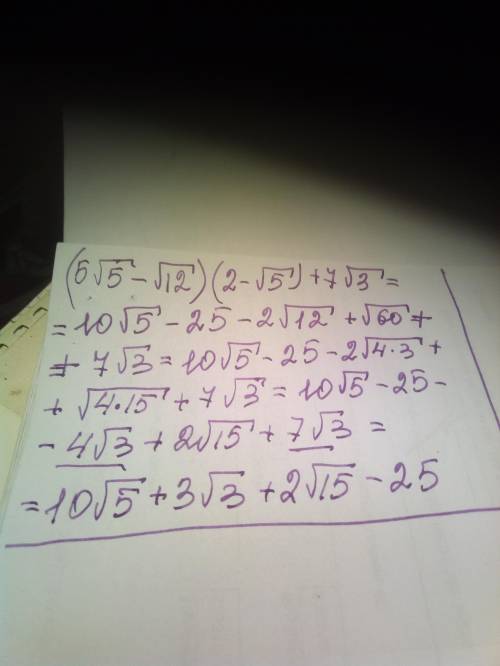 (5√5 - √12)(2 - √5) + 7√3 =
= 10√5 - 25 - 2√12 + √60 +
+ 7√3 = 10√5 - 25 - 2√4·3 +
+ √4·15 + 7√3 = 10√5 - 25 -
- 4√3 + 2√15 + 7√3 =
= 10√5 + 3√3 + 2√15 - 25